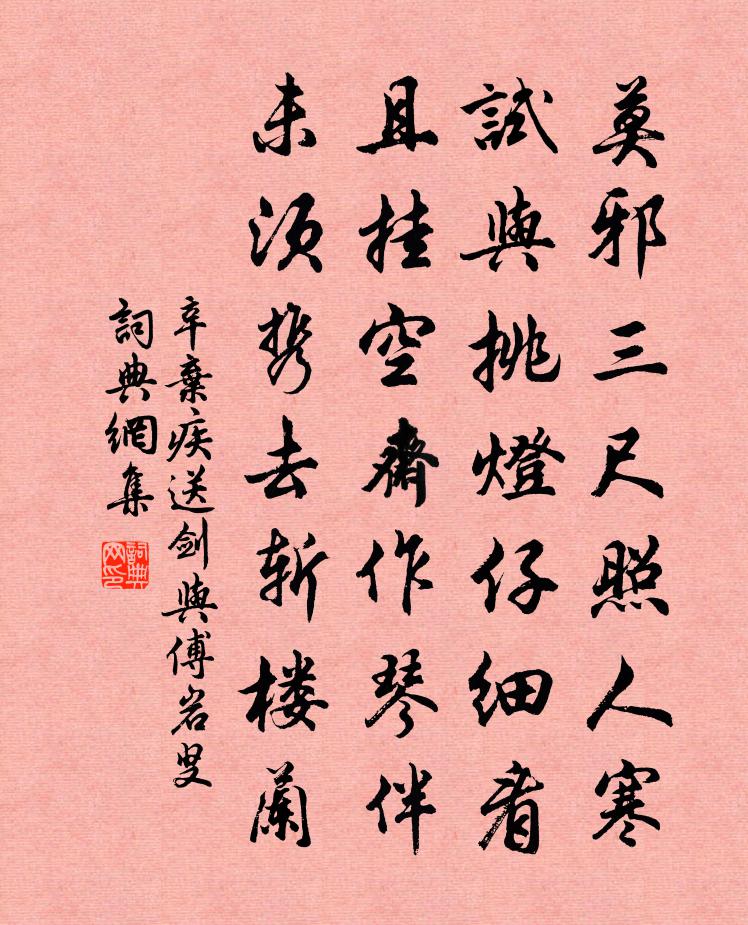 莫邪三尺照人寒
試與挑燈仔细看
且挂空齋作琴伴
未須携去斬楼蘭
辛棄疾送劍與傅岩叟
詞典網集
詞典网印